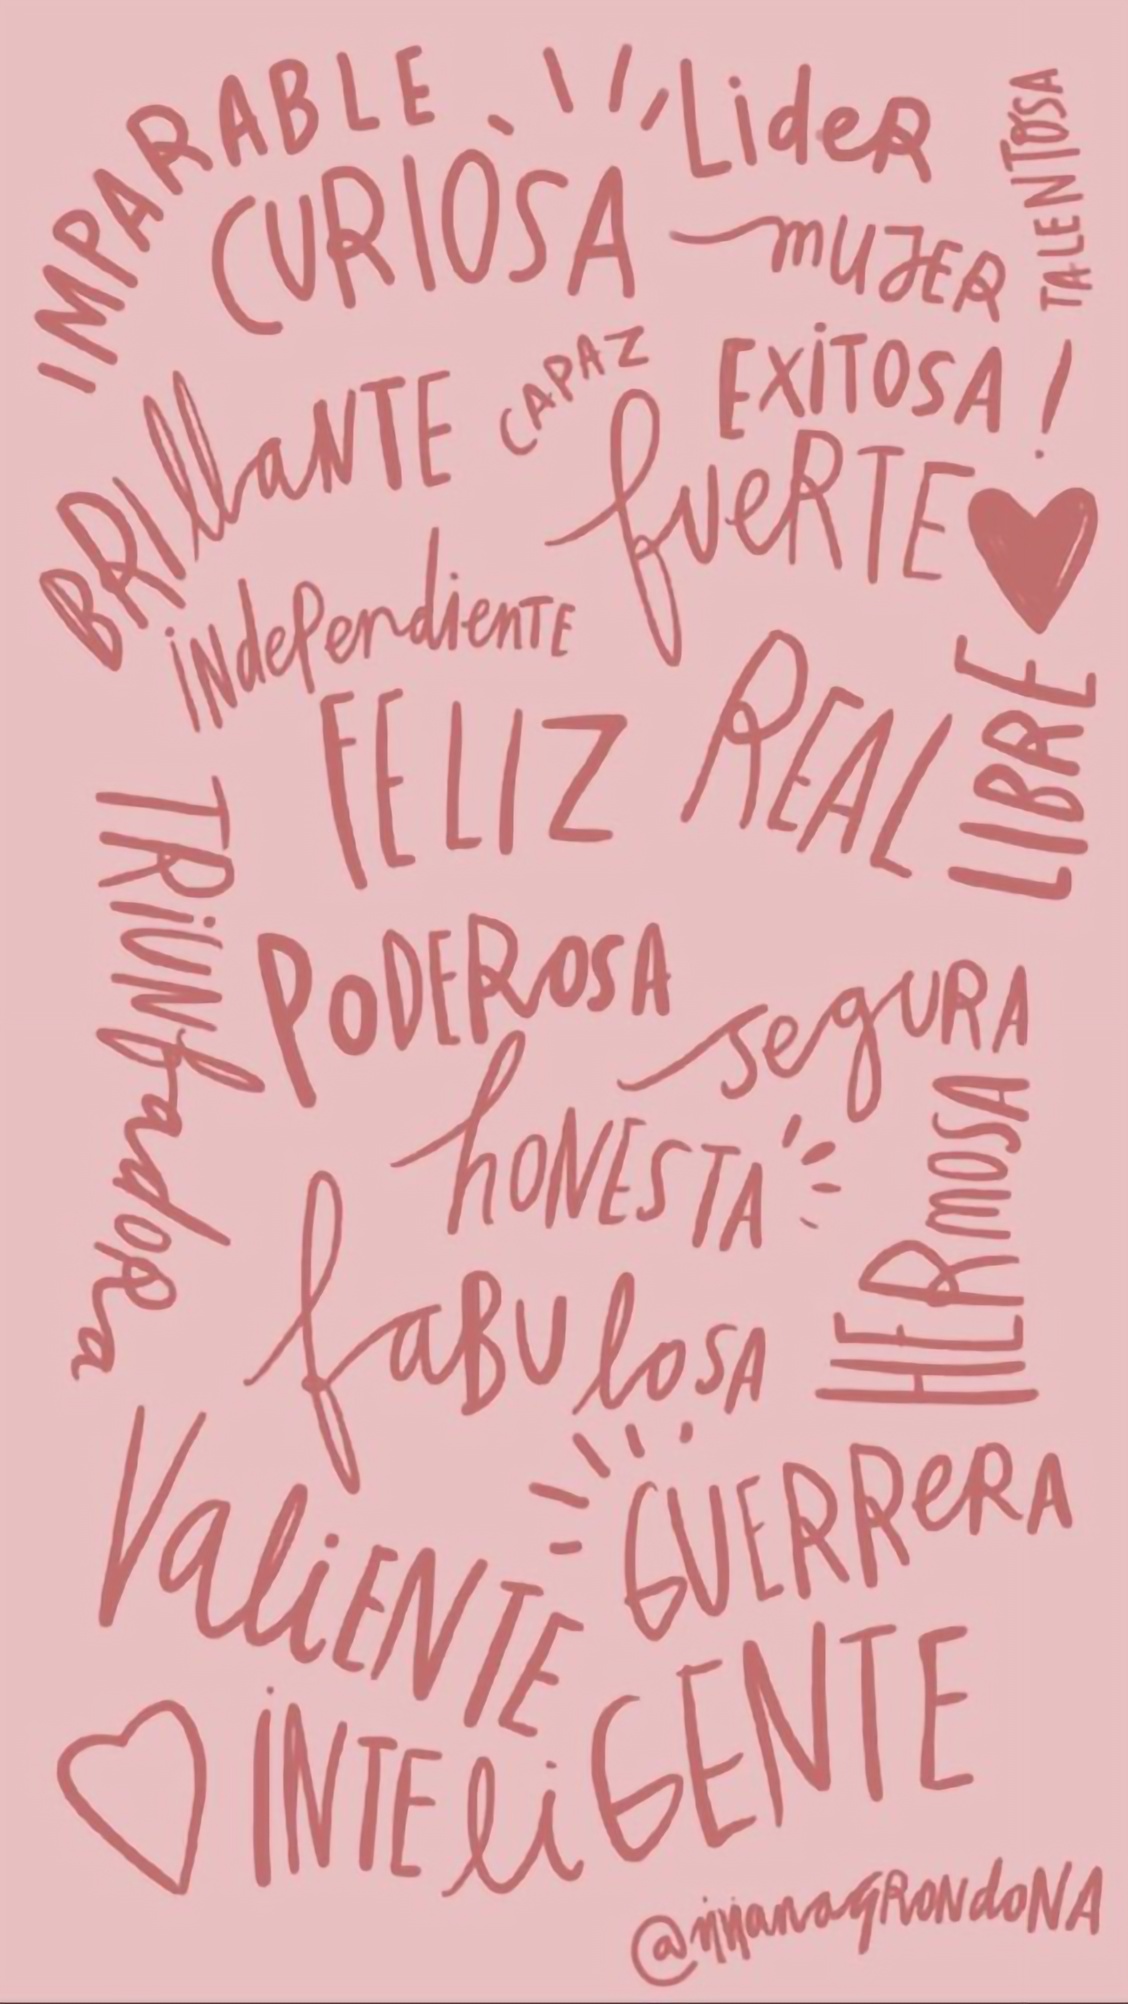 IMPARABLE
CURIOSA
Lider
mUJER
TALENTOSA
EXiTOSA!
CAPAZ
BRIllaNTE
fueRTE
iNdePendienTE
FELIZ
REAL
LIBRE
TRiUNfadoRa
PoDERoSA
segURA
hONESTA
HERmOSA
faBUloSA
ValiENTE
GUERReRA
iNTEliGENTE